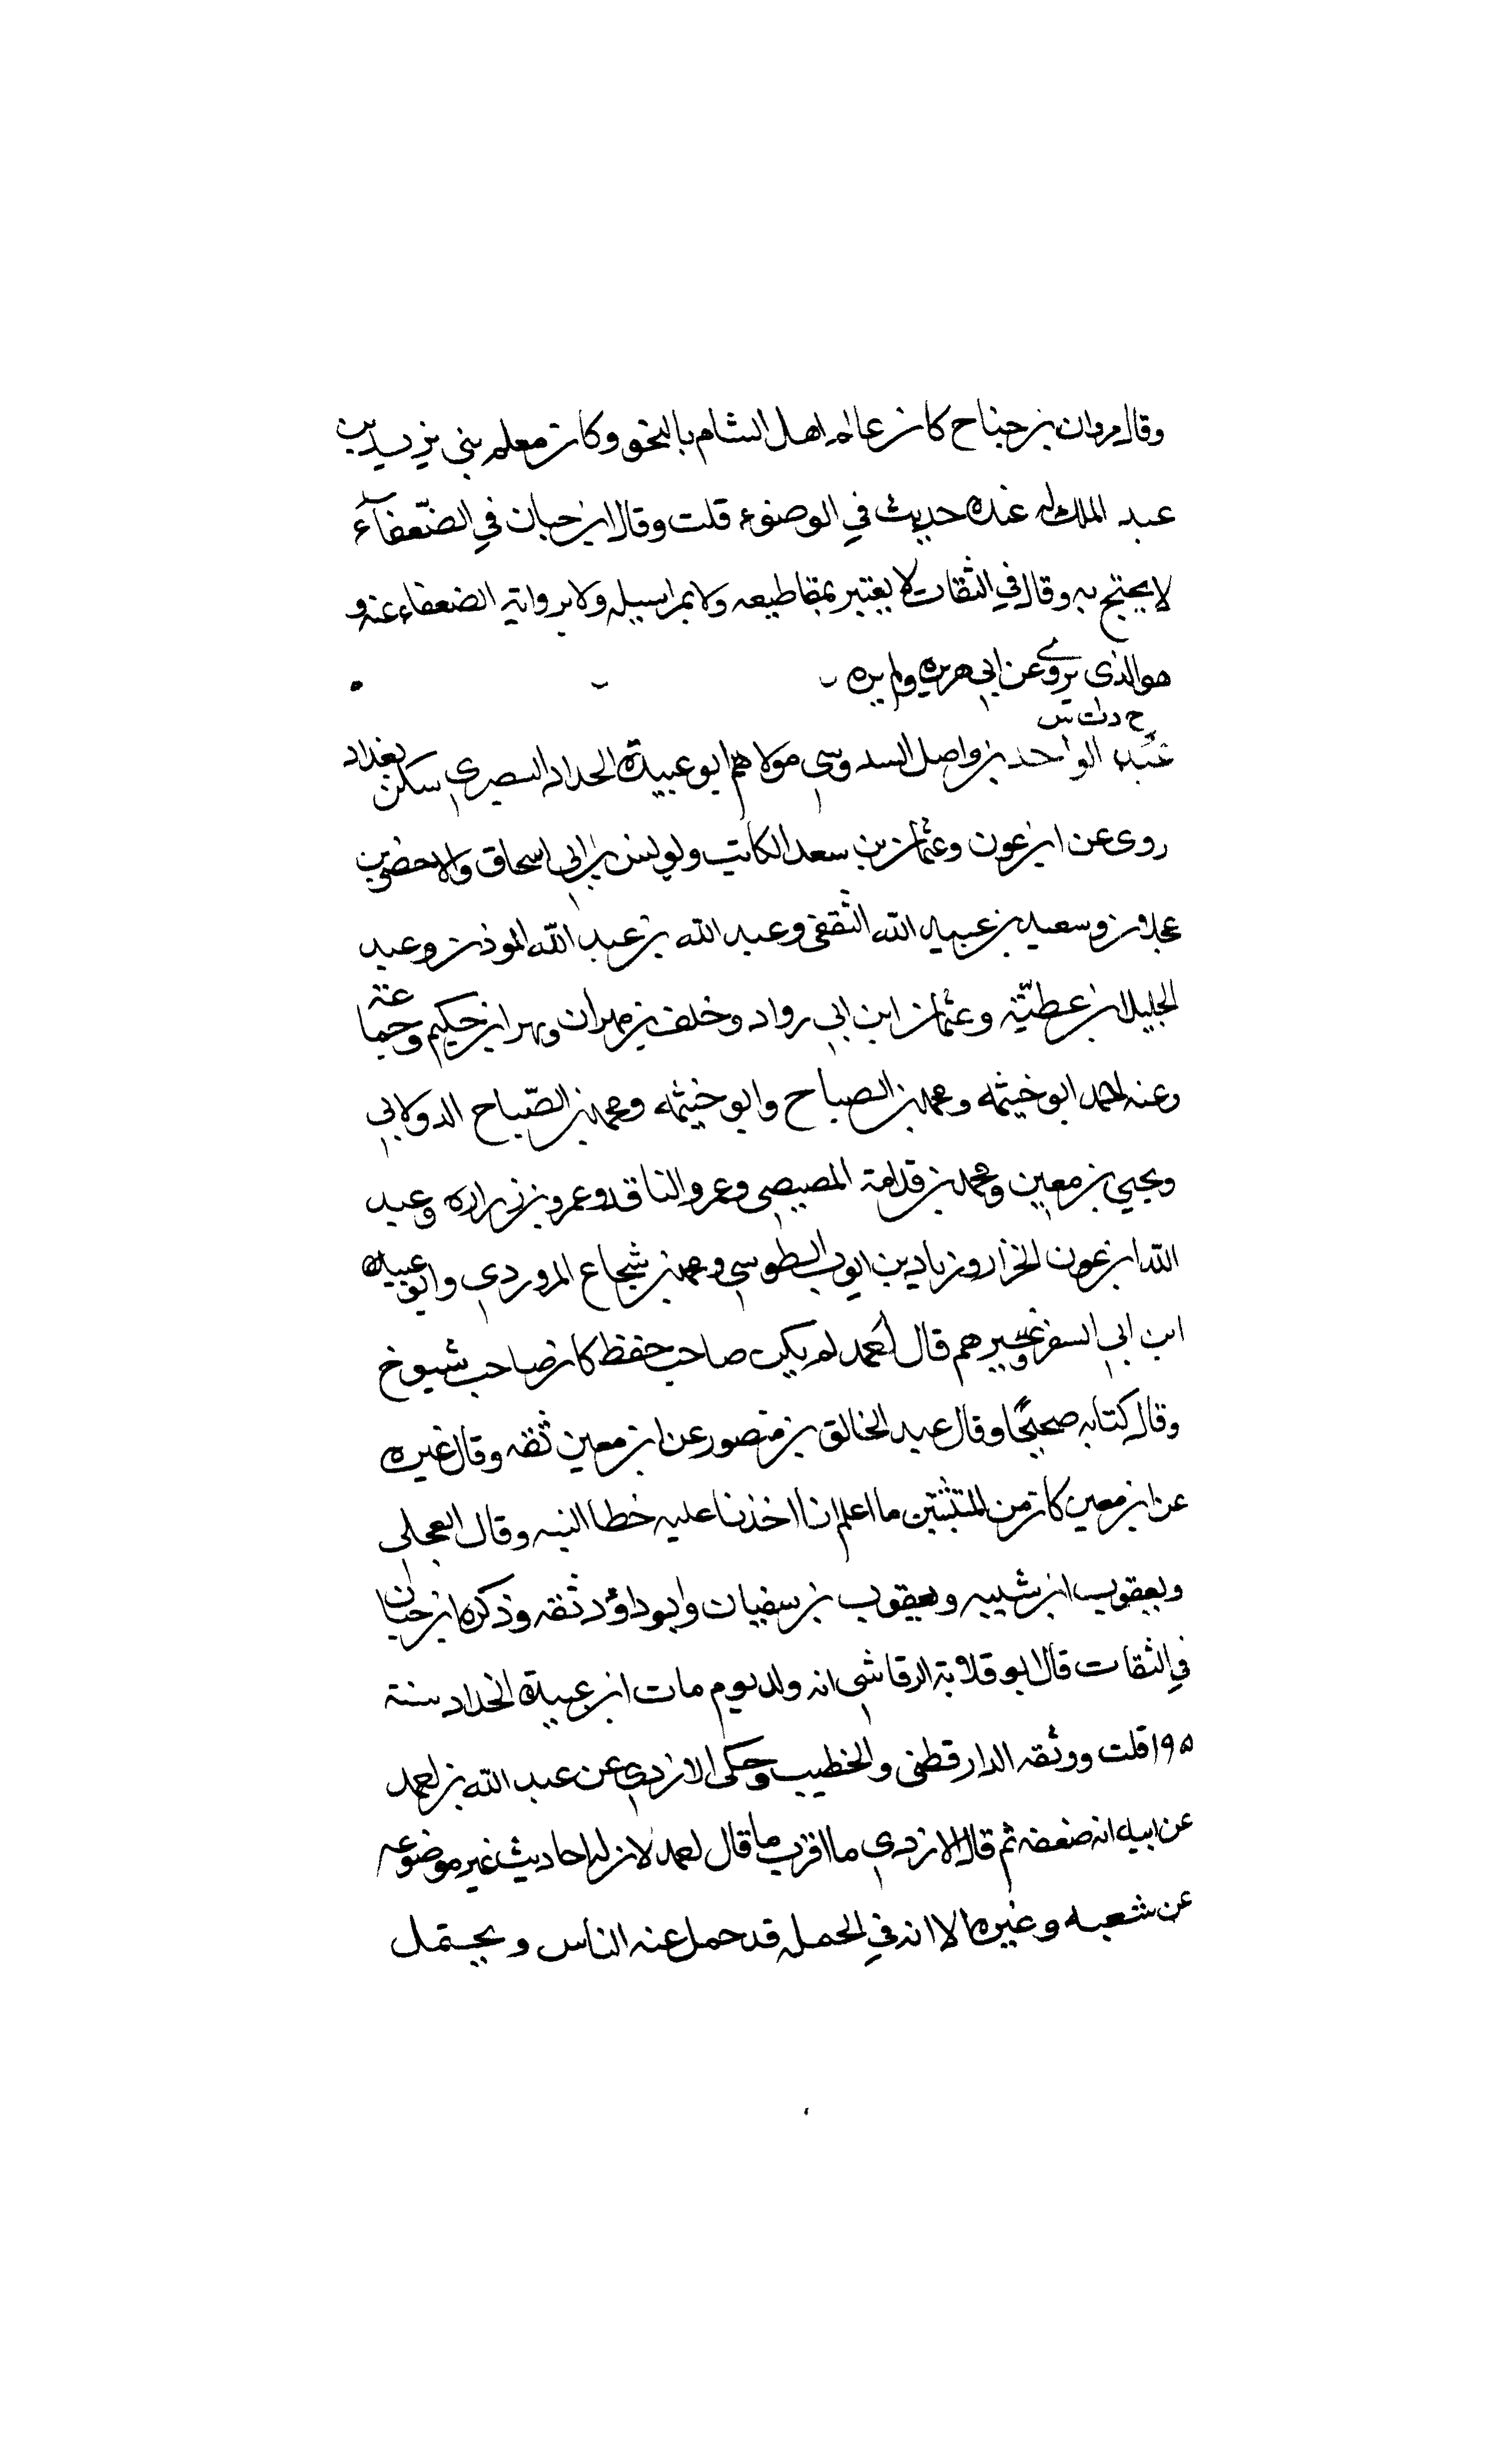 وقال مروان بن جناح كان عالم اهل الشام بالنحو وكان معلم بني يزيد بن
عبد الملك له عنده حديث في الوضوء قلت وقال ابن حبان في الضعفآء
لا يحتج به وقال في الثقات لا يعتبر بمقاطيعه ولا بمراسيله ولا برواية الضعفاء عنه و
هو الذى يروي عن ابي هريره ولم يره
خ د ت س
عبد الواحد بن واصل السدوسي مولاهم ابو عبيدة الحداد البصري سكن بغداد
روى عن ابن عون وعثمان بن سعد الكاتب ويونس بن ابي اسحاق والاخضر بن
عجلان وسعيد بن عبيد الله الثقفي وعبد الله بن عبد الله الموذن وعبد
الجليل بن عطيّة وعثمان ابن ابي رواد وخلف بن مهران وبهز ابن حكيم وجماعة
وعنه احمد ابو خيثمه ومحمد بن الصباح وابو خيثمه ومحمد بن الصّباح الدولابي
ويحيي بن معين ومحمد بن قدامة المصيصي وعمرو الناقد وعمرو بن زراره وعبد
الله ابن عون الخزار وزياد بن ايوب الطوسي ومحمد بن شجاع المروردي وابو عبيدة
ابن ابي السفر وغيرهم قال احمد لم يكن صاحب حفظ كان صاحب شيوخ
وقال كتابه صحيحًا وقال عبد الخالق بن منصور عن ابن معين ثقه وقال غيره
عن ابن معين كان من المتثبتين ما اعلم انا اخذنا عليه خطا البته وقال العجلي
ويعقوب ابن شيبه ويعقوب بن سفيان وابو داؤد ثقه وذكره ابن حبان
في الثقات قال ابو قلابة الرقاشي انه ولد يوم مات ابن عبيدة الحداد سنة
١٩٥ قلت ووثقه الدار قطني والخطيب وحكى الازدي عن عبد الله بن احمد
عن ابيه انه ضعفه ثم قال الازدي ما اقرب ما قال احمد لان له احاديث غير موضوعه
عن شعبه وغيره الا انه في الجمله قد حمل عنه الناس ويحتمل